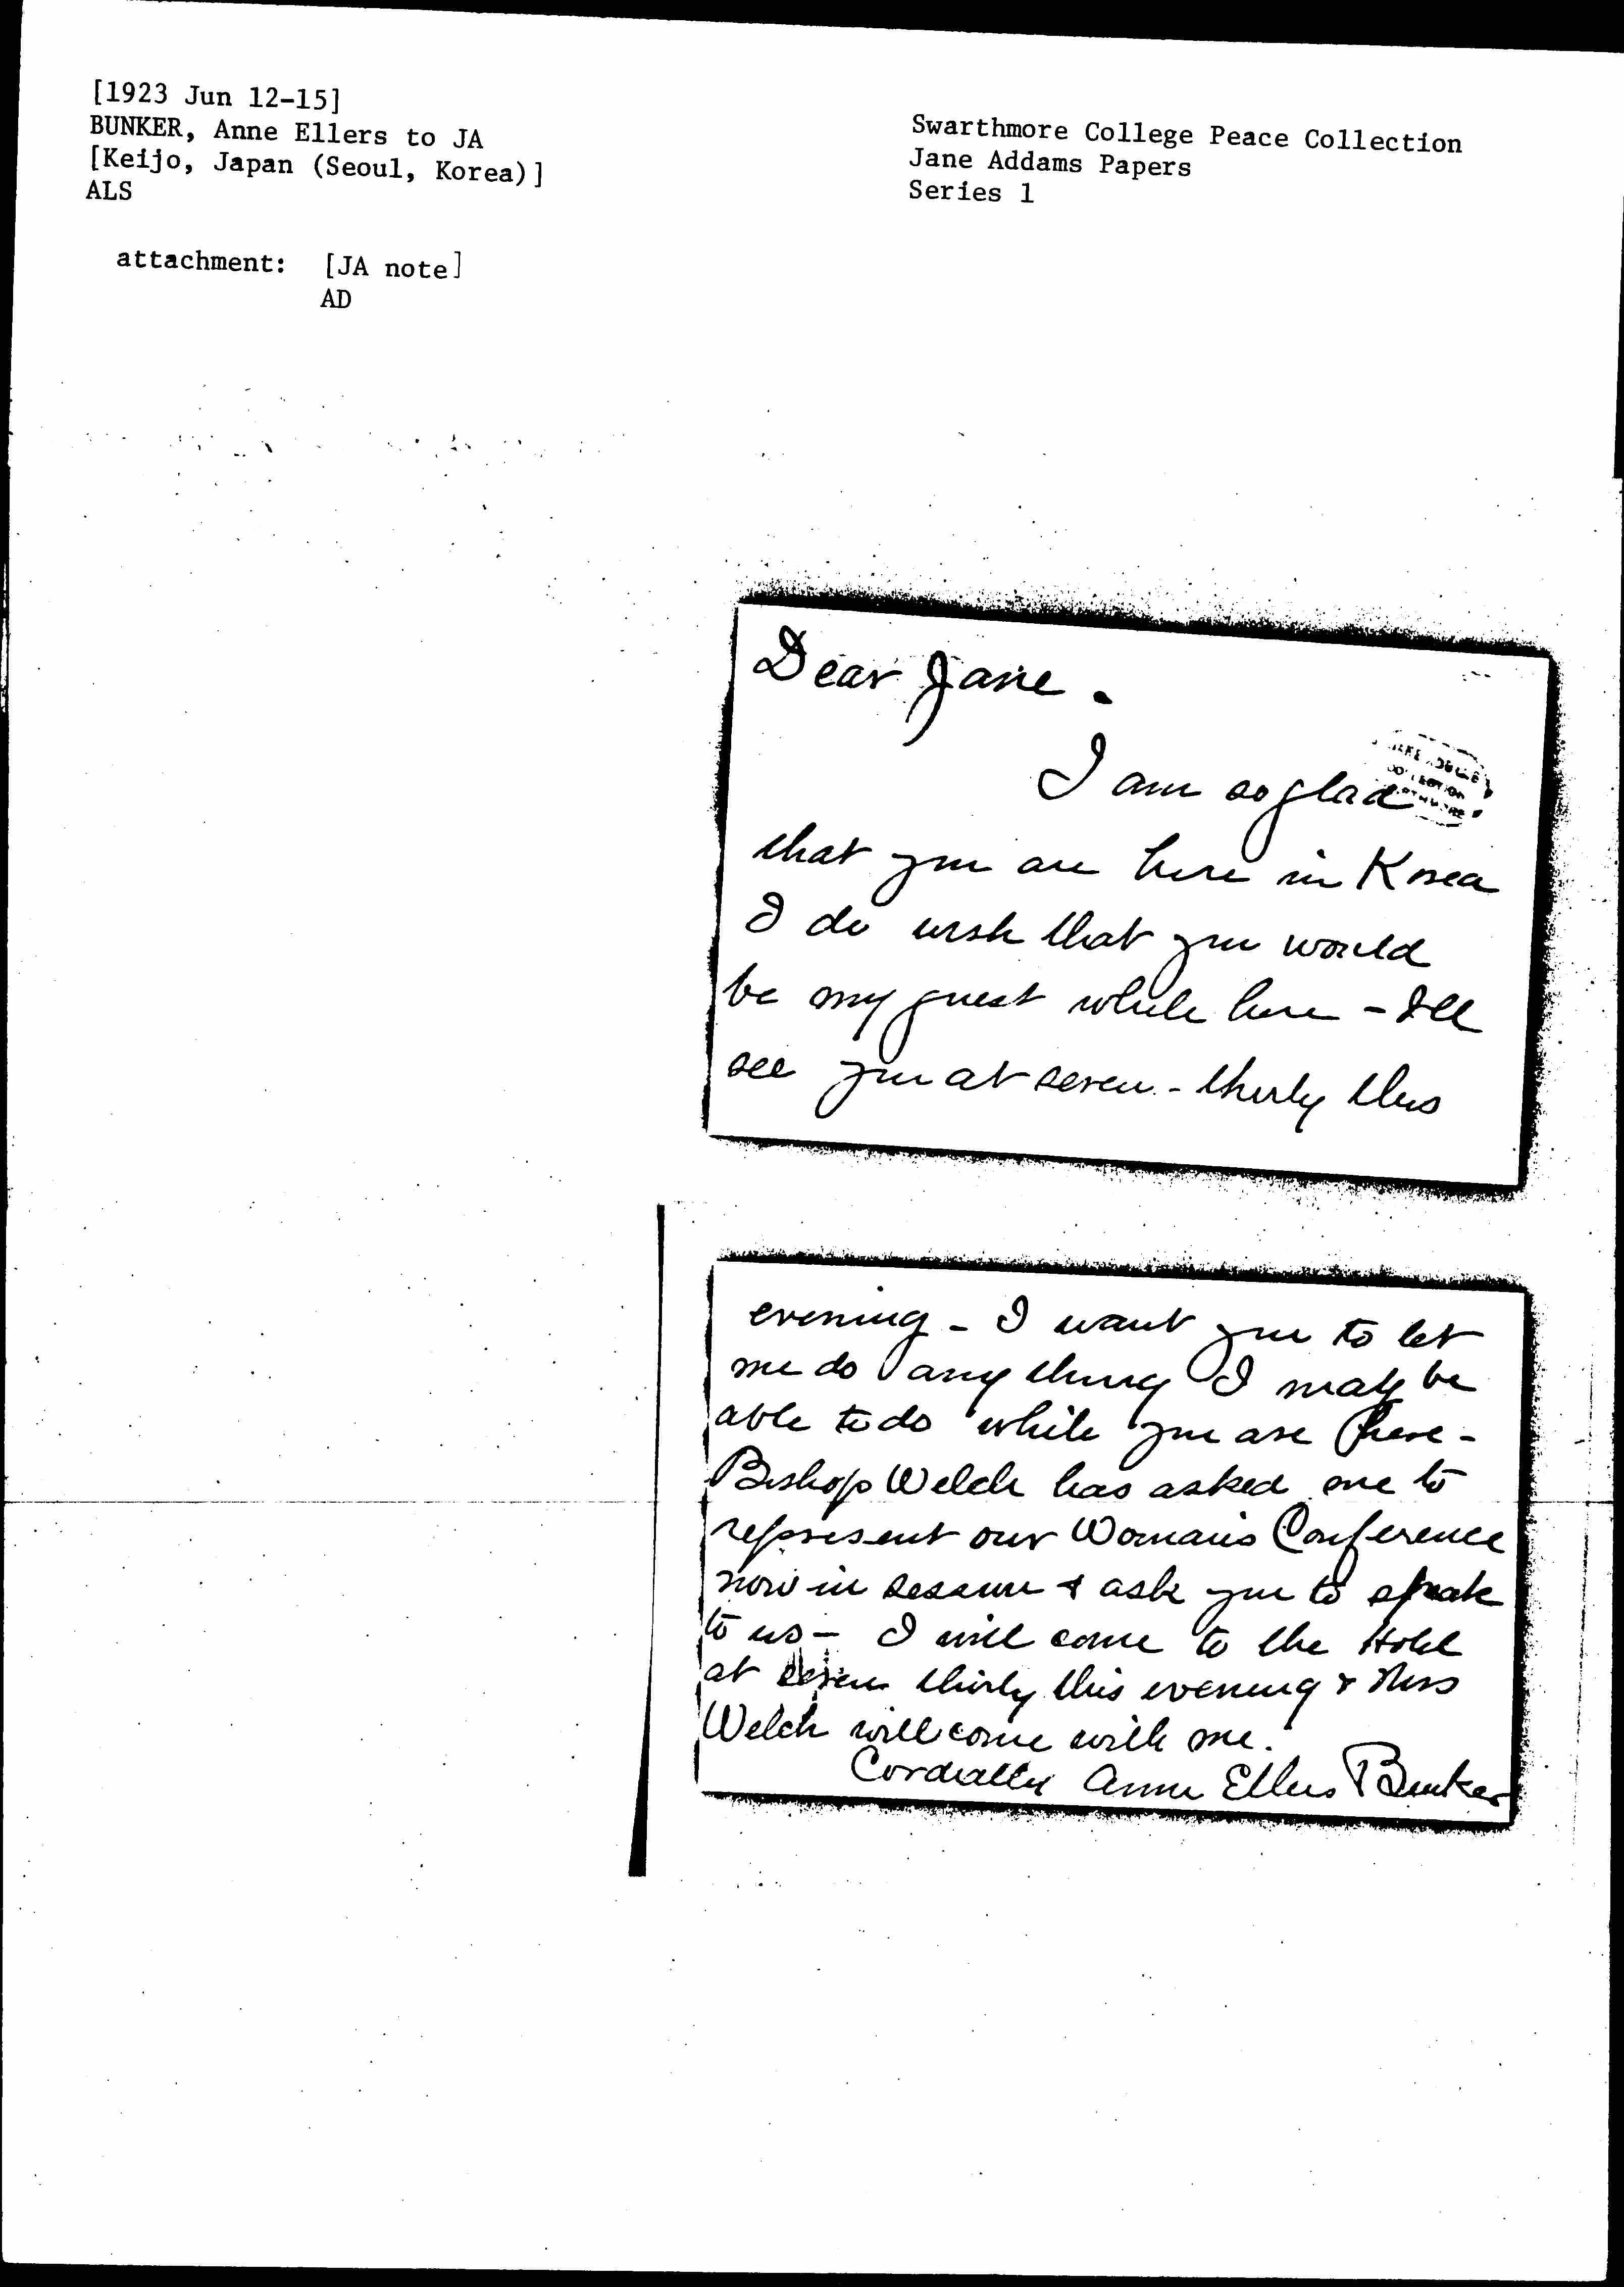 [1923 Jun 12-15]
BUNKER, Anne Ellers to JA
[Keijo, Japan (Seoul, Korea)]
ALS
attachment: [JA note]
AD
Swarthmore College Peace Collection
Jane Addams Papers
Series 1
Dear Jane.
I am so glad
that you are here in Korea
I do wish that you would
be my guest while here - I'll
see you at seven - thirty this
evening - I want you to let
me do any thing I may be
able to do while you are here -
Bishop Welch has asked me to
represent our Woman's Conference
now in session & ask you to speak
to us - I will come to the Hotel
at seven thirty this evening &
Welch will come with me.
Cordially Annie Ellers Bunker